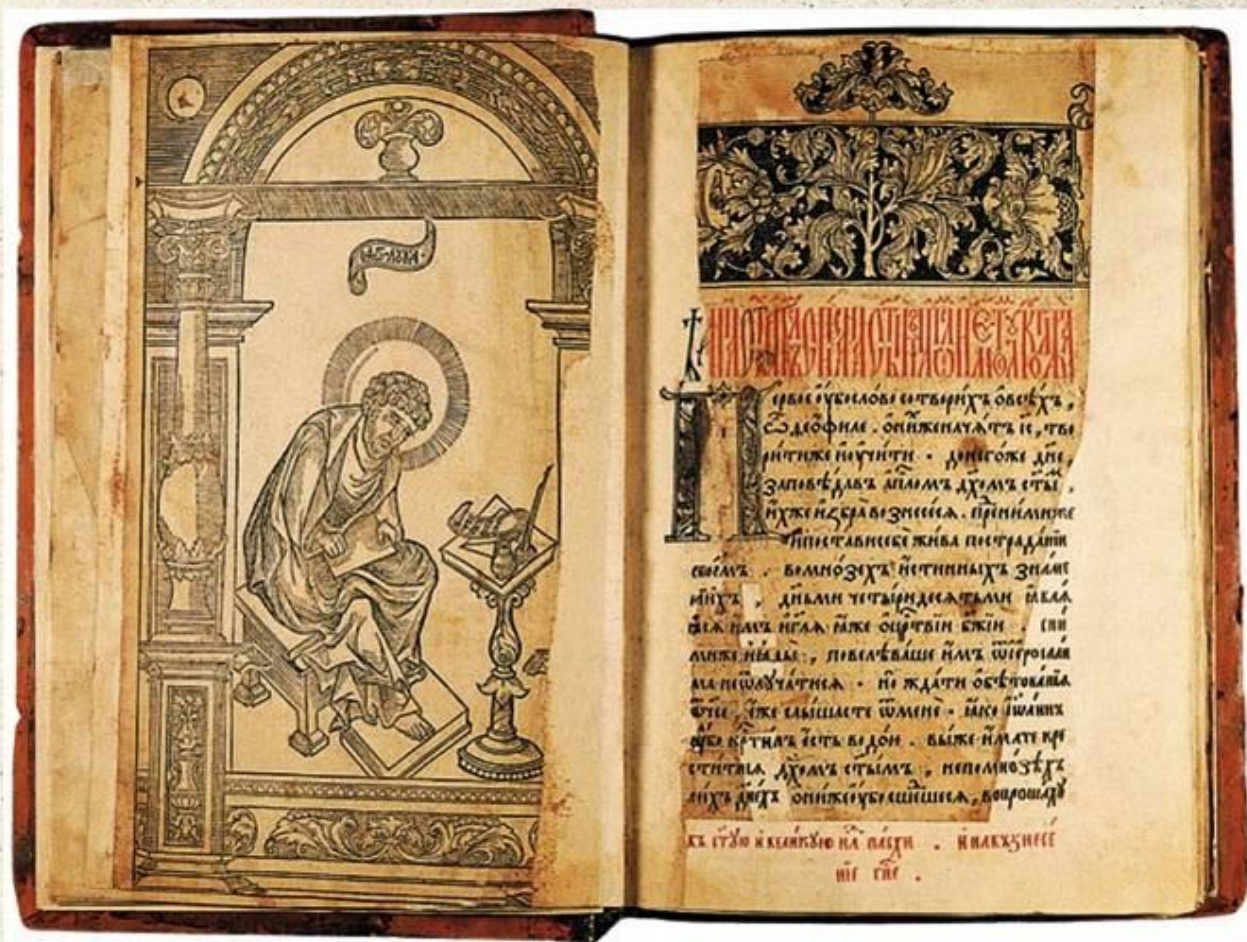 первое ѹбо слово сотворихъ о всѣхъ,
ѽ деофиле . о ниже начатъ іс, тво
рити же и учити . до него же дне,
заповѣдавъ апломъ дхомъ стым ,
ихже избра вознесеся . пре ними же
и постави себе жива по страданіи
своемъ . во мнозехъ истинныхъ знаме
ніихъ , дньми четыридесятьми явлѧ
ѧсѧ имъ и глѧ яже о црствіи бжіи . с ни
миже и ѧдыи , повелѣваше имъ ѿ ерослаи
ма не ѿлучатисѧ . но ждати обѣтованіѧ
ѿчее , еже слышасте ѿ мене . яко іѡаннъ
ѹбо крстилъ есть водою . вы же имате кре
ститисѧ дхомъ стымъ , не по мнозѣхъ
сихъ днехъ они же ѹбо сшедшесѧ, вопрошахѹ
въ стую и великую нлю пасхи . и на възнесе
ніе гне .